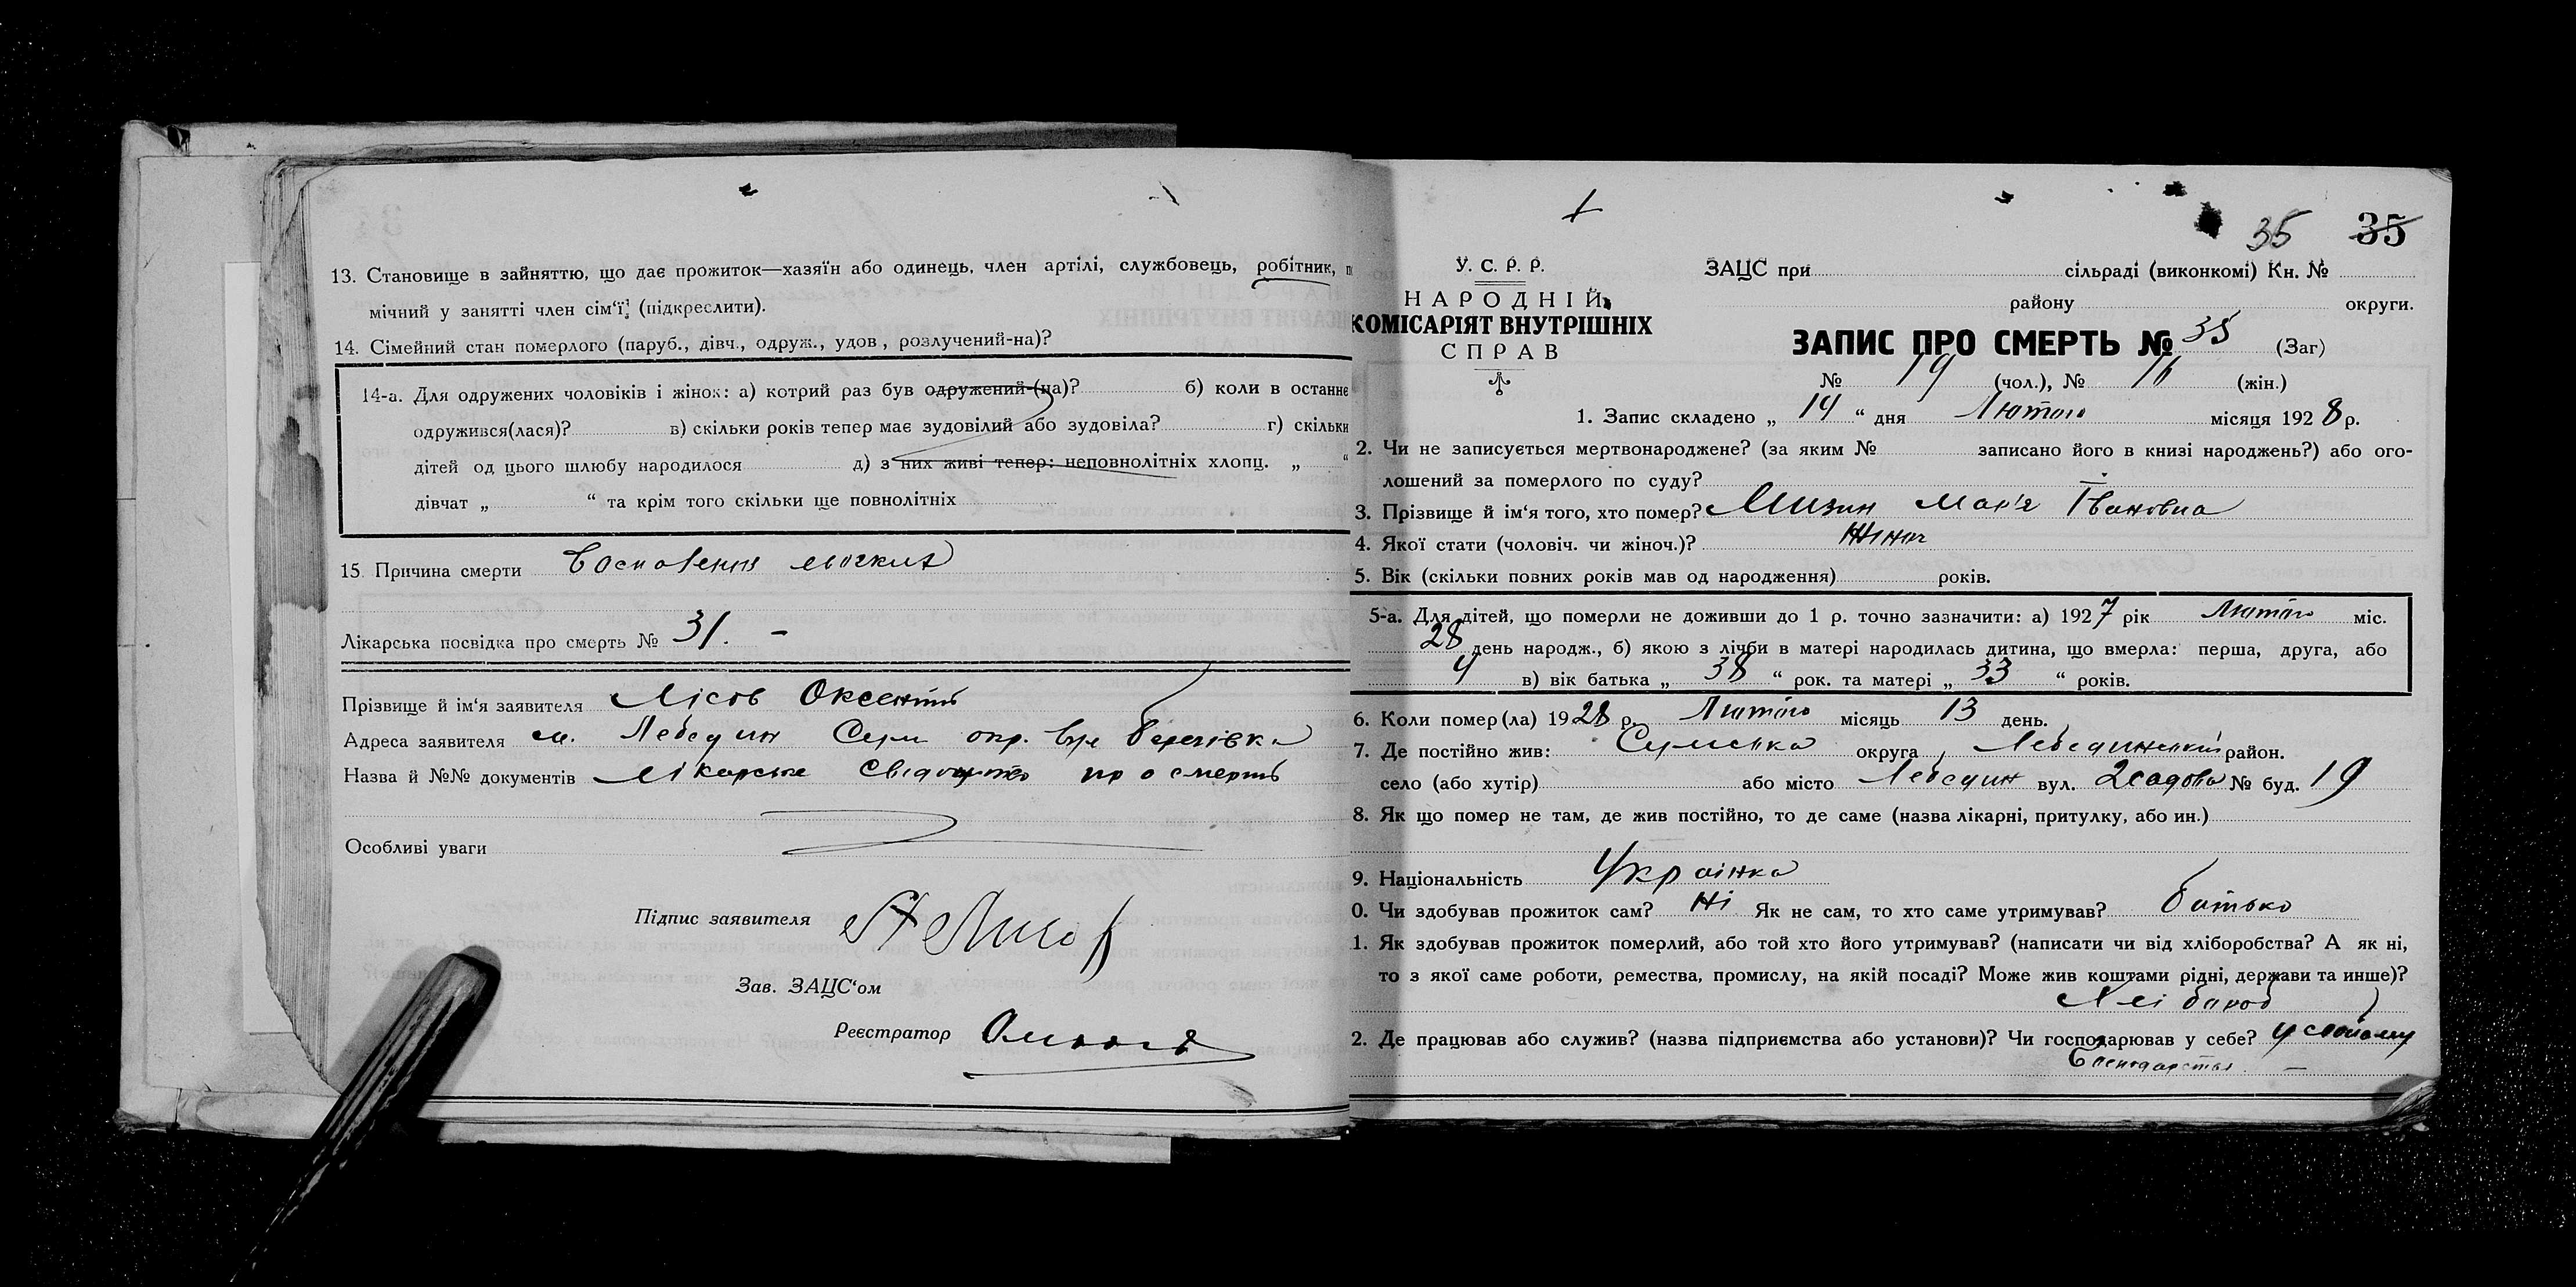 13. Становище в зайняттю, що дає прожиток—хазяїн або одинець, член артілі, службовець, робітник,
мічний у занятті член сім‘ї, (підкреслити).
14. Сімейний стан померлого (паруб., дівч., одруж., удов., розлучений-на)?
14-а. Для одружених чоловіків і жінок: а) котрий раз був одружений-(на)? б) коли в останнє
одружився(лася)? в) скільки років тепер має зудовілий або зудовіла? г) скільки
дітей од цього шлюбу народилося д) з них живі тепер: неповнолітніх хлопц. „ “
дівчат „ “ та крім того скільки ще повнолітніх
15. Причина смерти Воспаления
Лікарська посвідка про смерть № 31. –
Прізвище й ім‘я заявителя Лісов Оксентій
Адреса заявителя м. Лебедин Сум окр. вул
Назва й №№ документів Лікарське свідоцтво про смерть
Особливі уваги
Підпис заявителя
Зав. ЗАЦС‘ом
Реєстратор
35 35
У. С. Р. Р.
НАРОДНІЙ
КОМІСАРІЯТ ВНУТРІШНІХ
СПРАВ
ЗАЦС при сільраді (виконкомі) Кн. №
району округи.
ЗАПИС ПРО СМЕРТЬ № 35 (Заг)
№ 19 (чол.), № 16 (жін.)
1. Запис складено „ 14 “ дня Лютого місяця 1928 р.
2. Чи не записується мертвонароджене? (за яким № записано його в книзі народжень?) або ого-
лошений за померлого по суду?
3. Прізвище й ім‘я того, хто помер? Мизин Мар'я Івановна
4. Якої стати (чоловіч. чи жіноч.)? жіноч
5. Вік (скільки повних років мав од народження) років.
5-а. Для дітей, що померли не доживши до 1 р. точно зазначити: а) 1927 рік Лютого міс.
28 день народж., б) якою з лічби в матері народилась дитина, що вмерла: перша, друга, або
4 в) вік батька „ 38 “ рок. та матері „ 33 “ років.
6. Коли помер(ла) 1928 р. Лютого місяць 13 день.
7. Де постійно жив: Сумська округа, Лебединський район.
село (або хутір) або місто Лебедин вул. 2 садова № буд. 19
8. Як що помер не там, де жив постійно, то де саме (назва лікарні, притулку, або ин.)
9. Національність Українка
0. Чи здобував прожиток сам? Ні Як не сам, то хто саме утримував? батько
1. Як здобував прожиток померлий, або той хто його утримував? (написати чи від хліборобства? А як ні,
то з якої саме роботи, ремества, промислу, на якій посаді? Може жив коштами рідні, держави та инше)?
Хлібороб
2. Де працював або служив? (назва підприємства або установи)? Чи господарював у себе? у своему
Господарстві –